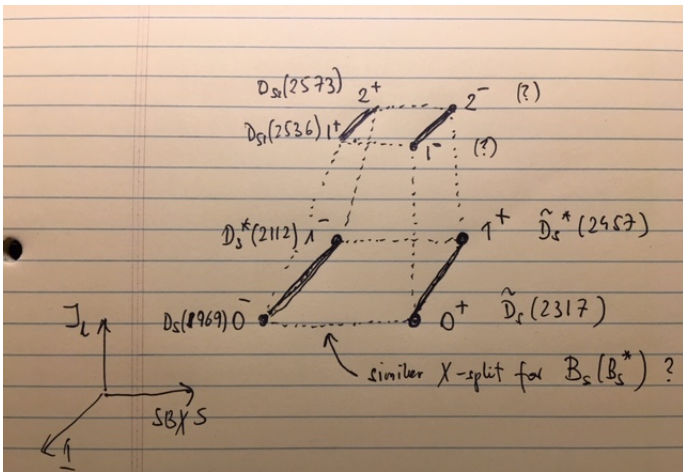 D_{s2}(2573) 2^+ 2^- (?)
D_{s1}(2536) 1^+ 1^- (?)
D_s^*(2112) 1^- 1^+ \tilde{D}_s^*(2457)
D_s(1969) 0^- 0^+ \tilde{D}_s(2317)
similar X-split for B_s(B_s^*) ?
J_l
SBχS